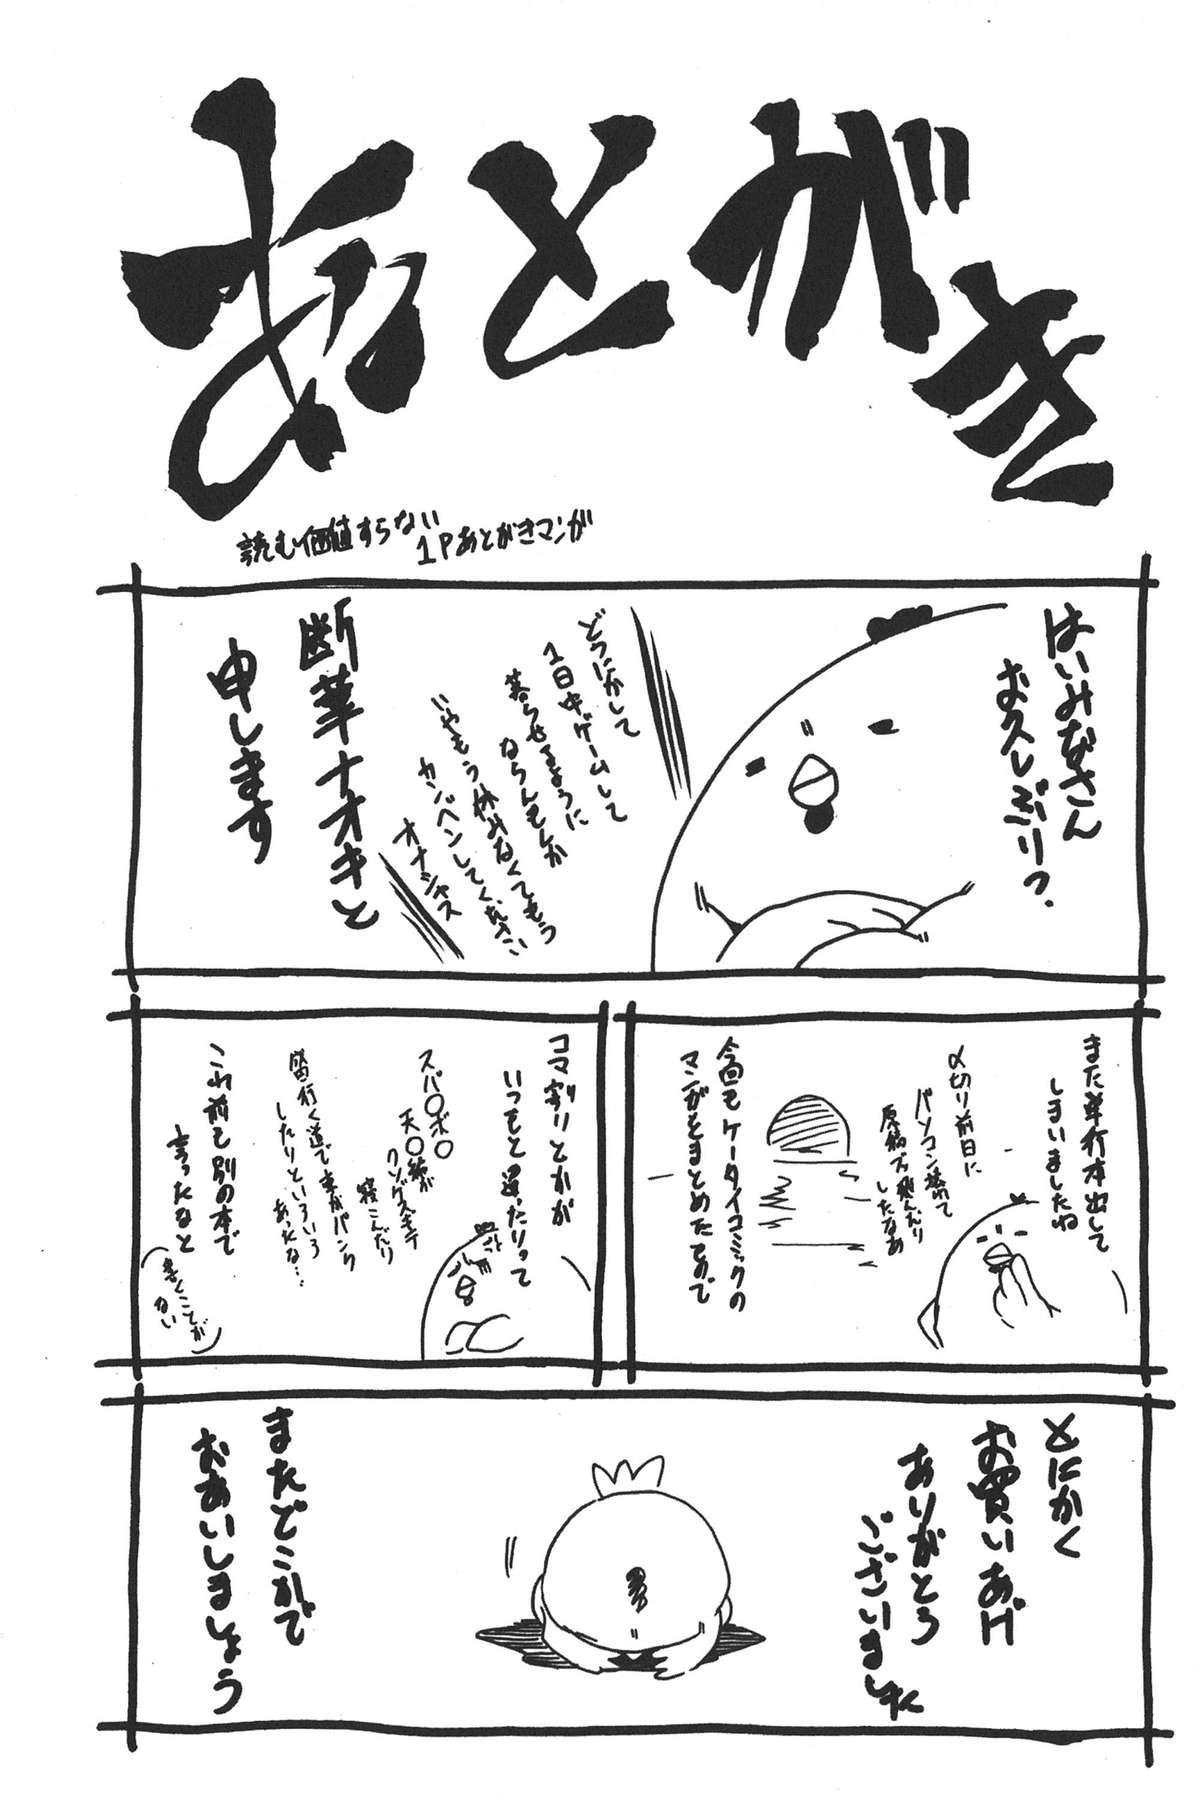 あとがき
読む価値すらない
1Pあとがきマンガ
はいみなさん
お久しぶりっ、
どうにかして
1日中ゲームして
暮らせるように
ならんもんか
いやもう休みなくてもう
カンベンしてください
オナシャス
断華ナオキと
申します
また単行本出して
しまいましたね
〆切り前日に
パソコン壊れて
原稿ブッ飛んだり
したなあ
今回もケータイコミックの
マンガをまとめたもので
コマ割りとかが
いつもと違ったりって
スパ〇ボ〇
天〇編が
クソゲスギテ
寝こんだり
留行く道で車がパンク
したりといろいろ
あったな…
これ前も別の本で
言ったなと
(書くことが
ない)
とにかく
お買いあげ
ありがとう
ございました
またどこかで
おあいしましょう